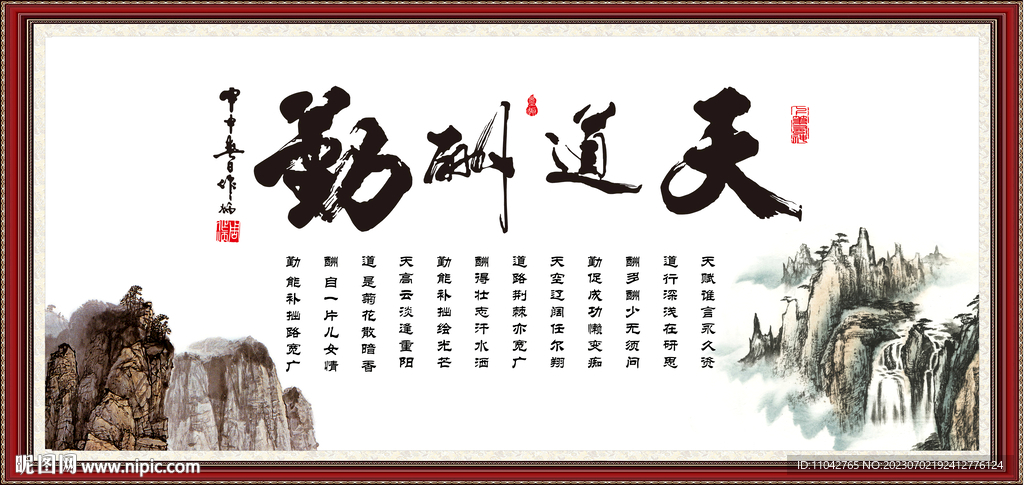 天道酬勤
天赋谁言永久资
道行深浅在研思
酬多酬少无须问
勤促成功懒变痴
天空辽阔任尔翔
道路荆棘亦宽广
酬得壮志汗水洒
勤能补拙绘光芒
天高云淡逢重阳
道是菊花散暗香
酬自一片儿女情
勤能补拙路宽广
昵图网 www.nipic.com
ID:11042765 NO:20230702192412776124